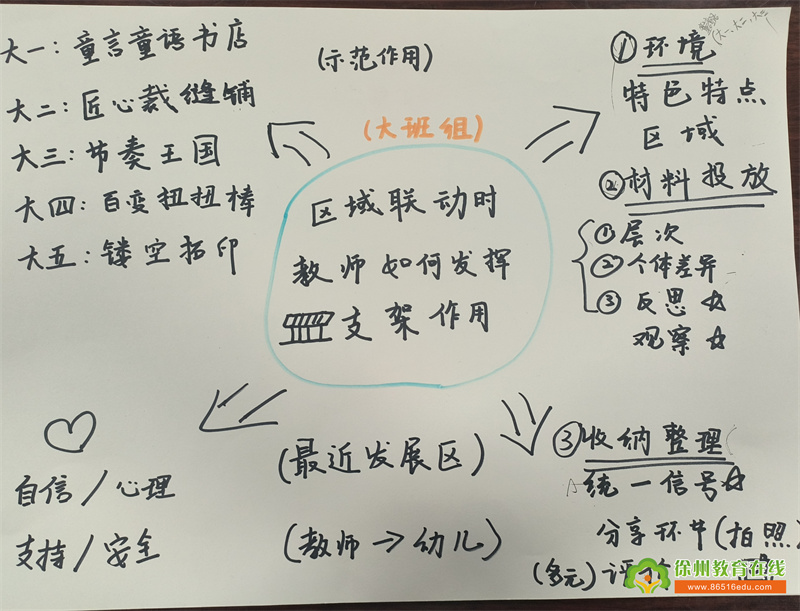 大一：童言童语书店
大二：匠心裁缝铺
大三：节奏王国
大四：百变扭扭棒
大五：镂空拓印
(示范作用)
(大班组)
区域联动时
教师如何发挥
支架作用
①环境
特色特点
区域
②材料投放
①层次
②个体差异
③反思☆
观察☆
自信/心理
支持/安全
(最近发展区)
(教师→幼儿)
③收纳整理
统一信号☆
分享环节(拍照
(多元)评
徐州教育在线
www.86516edu.com